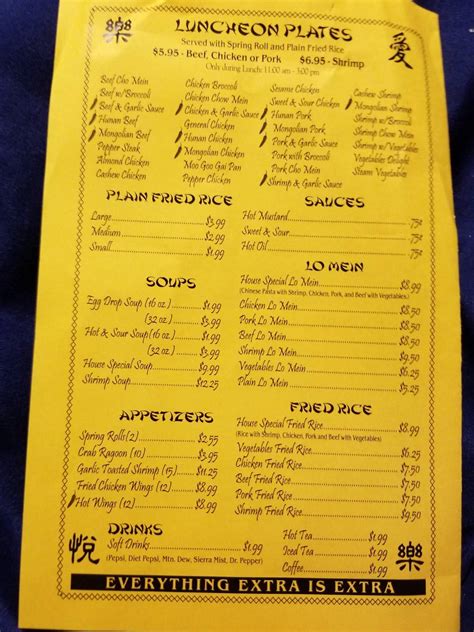 樂
LUNCHEON PLATES
愛
Served with Spring Roll and Plain Fried Rice
$5.95 - Beef, Chicken or Pork $6.95 - Shrimp
Only during Lunch: 11:00 am - 3:00 pm
Beef Cho Mein
Beef w/Broccoli
Beef & Garlic Sauce
Hunan Beef
Mongolian Beef
Pepper Steak
Almond Chicken
Cashew Chicken
Chicken Broccoli
Chicken Chow Mein
Chicken & Garlic Sauce
General Chicken
Hunan Chicken
Mongolian Chicken
Moo Goo Gai Pan
Pepper Chicken
Sesame Chicken
Sweet & Sour Chicken
Hunan Pork
Mongolian Pork
Pork & Garlic Sauce
Pork with Broccoli
Pork Cho Mein
Shrimp & Garlic Sauce
Cashew Shrimp
Mongolian Shrimp
Shrimp w/Broccoli
Shrimp Chow Mein
Shrimp w/Vegetables
Vegetables Delight
Steam Vegetables
PLAIN FRIED RICE
Large $3.99
Medium $2.99
Small $1.99
SAUCES
Hot Mustard 75¢
Sweet & Sour 75¢
Hot Oil 75¢
SOUPS
Egg Drop Soup (16 oz.) $1.99
(32 oz.) $3.99
Hot & Sour Soup (16 oz.) $1.99
(32 oz.) $3.99
House Special Soup $9.99
Shrimp Soup $12.25
LO MEIN
House Special Lo Mein $8.99
(Chinese Pasta with Shrimp, Chicken, Pork, and Beef with Vegetables.)
Chicken Lo Mein $8.50
Pork Lo Mein $8.50
Beef Lo Mein $8.50
Shrimp Lo Mein $9.50
Vegetables Lo Mein $6.25
Plain Lo Mein $5.25
APPETIZERS
Spring Rolls (2) $2.55
Crab Ragoon (10) $3.95
Garlic Toasted Shrimp (15) $11.25
Fried Chicken Wings (12) $8.99
Hot Wings (12) $8.99
FRIED RICE
House Special Fried Rice $8.99
(Rice with Shrimp, Chicken, Pork and Beef with Vegetables)
Vegetables Fried Rice $6.25
Chicken Fried Rice $7.50
Beef Fried Rice $7.50
Pork Fried Rice $7.50
Shrimp Fried Rice $9.50
悅
DRINKS
Soft Drinks $1.99
(Pepsi, Diet Pepsi, Mtn. Dew, Sierra Mist, Dr. Pepper)
Hot Tea $1.99
Iced Tea $1.99
Coffee $1.99
樂
EVERYTHING EXTRA IS EXTRA